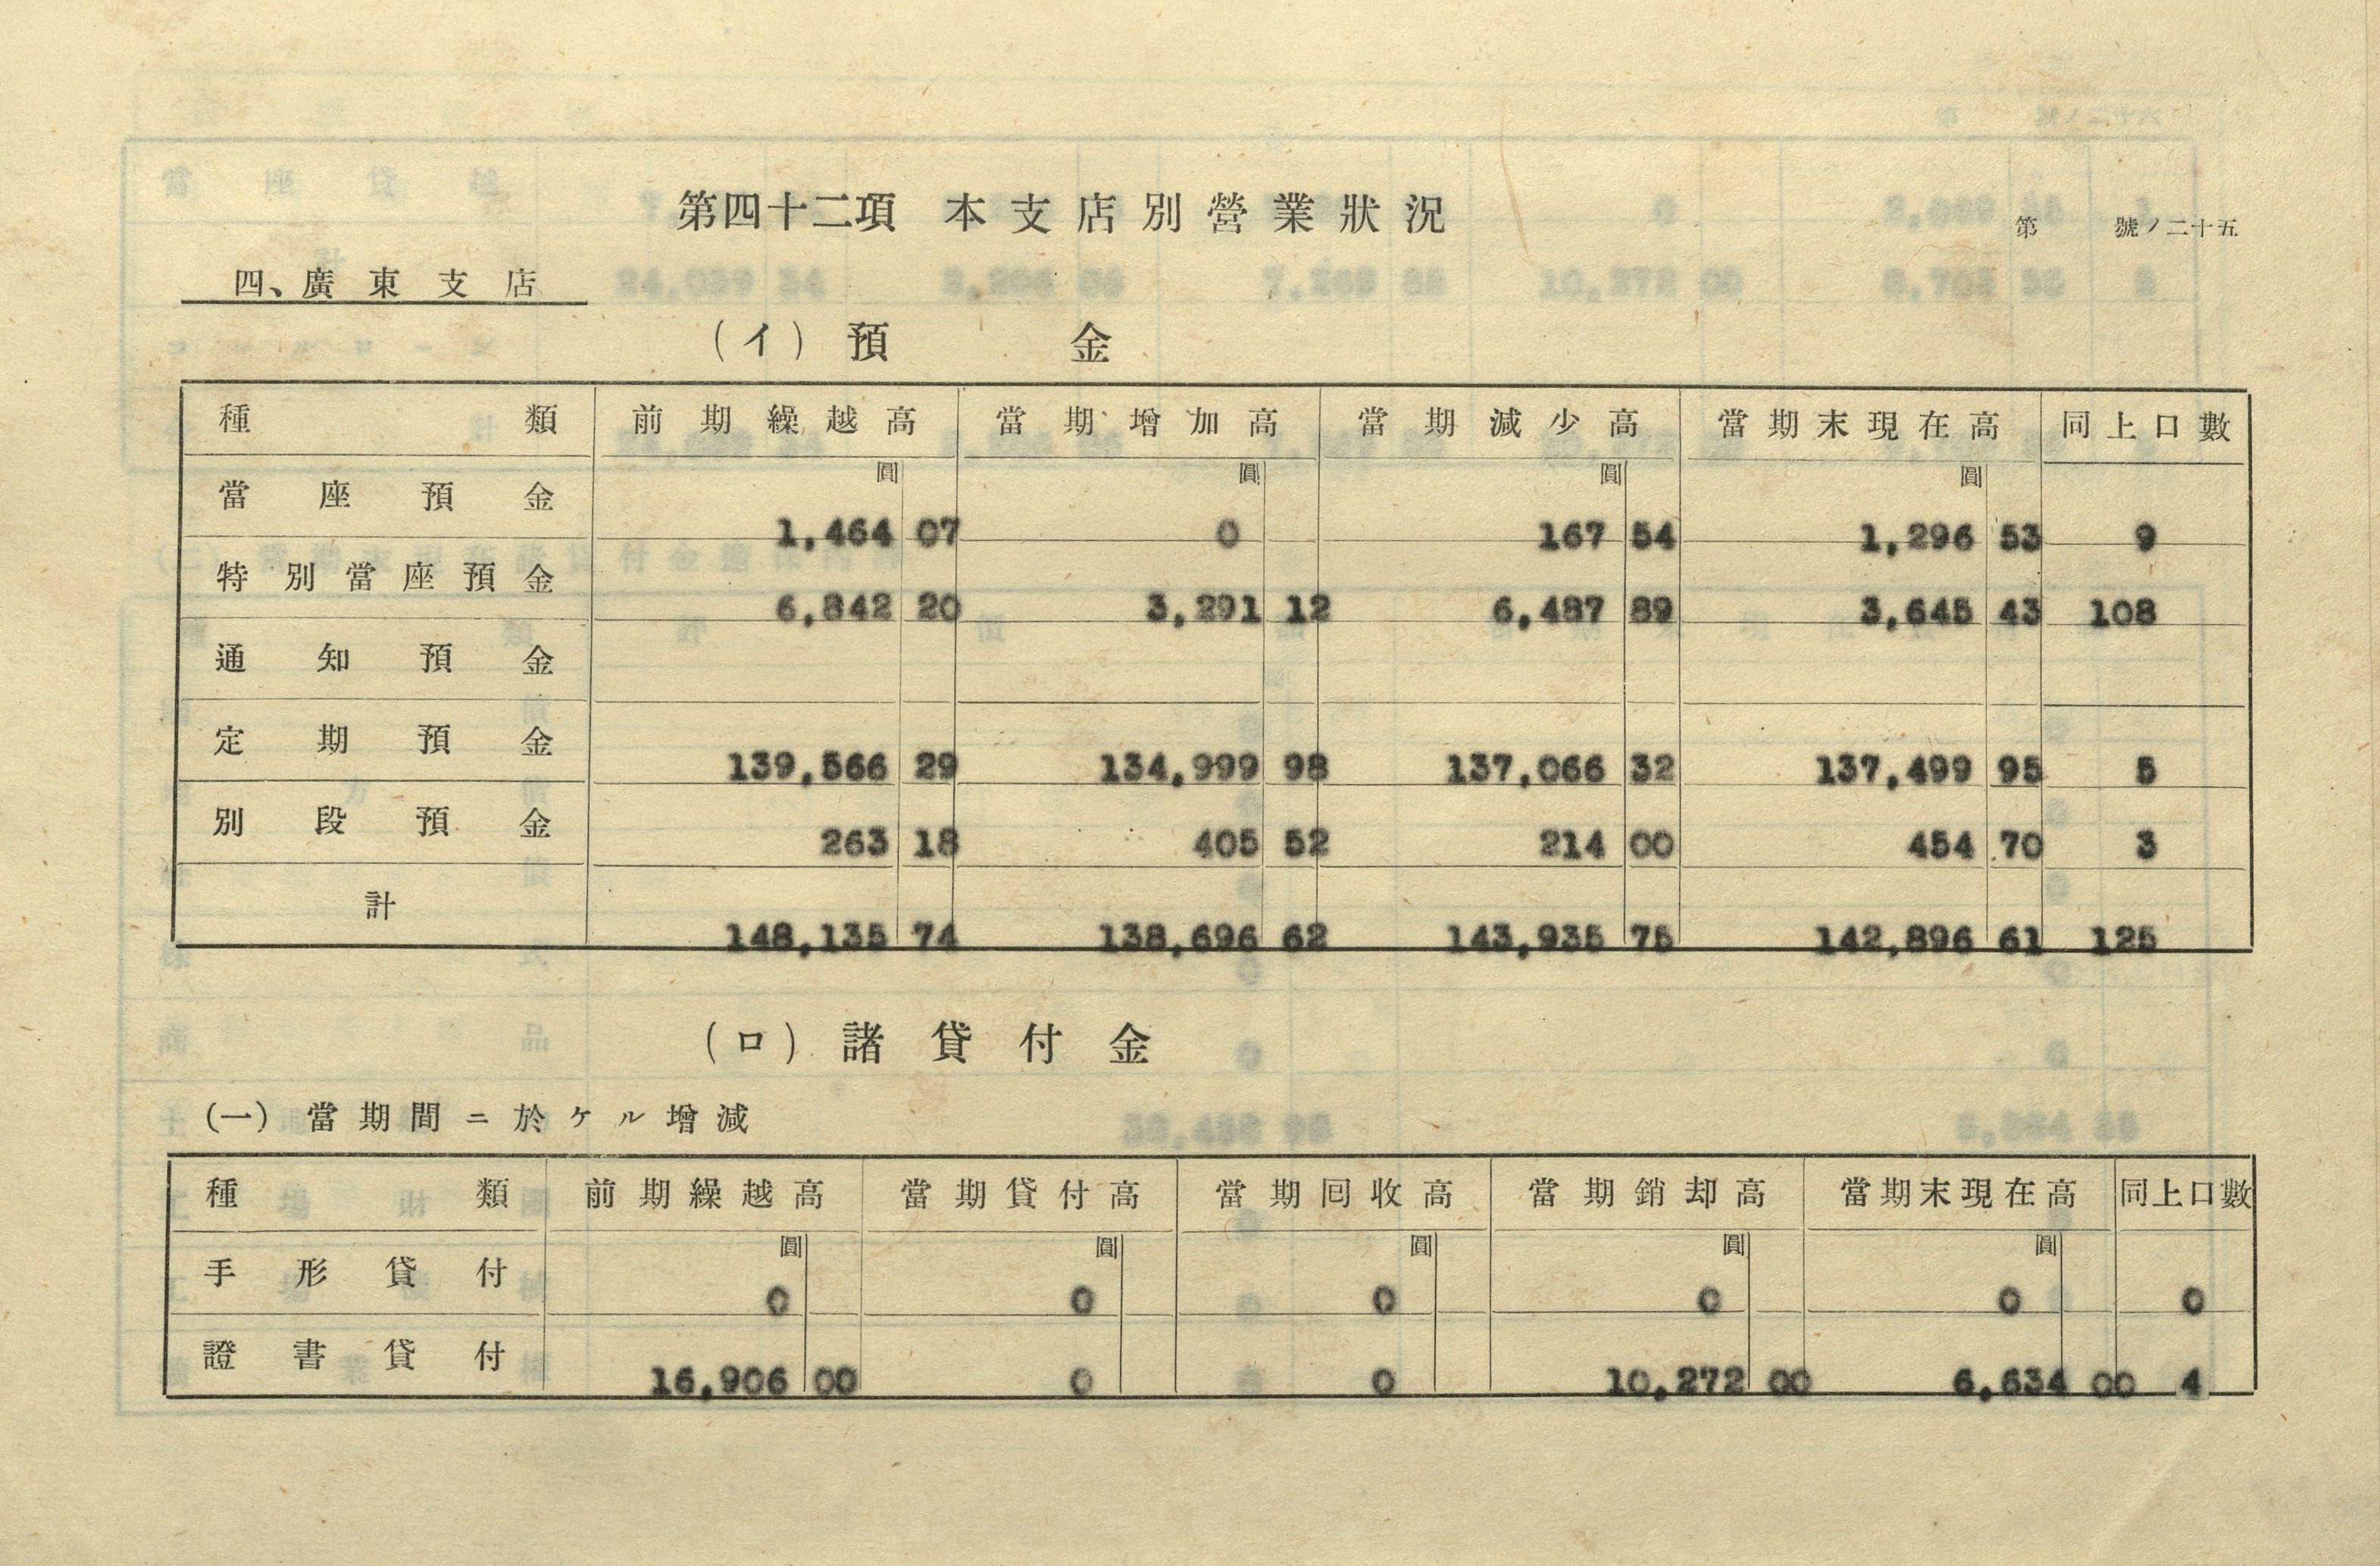 第四十二項 本支店別營業狀況
第 號ノ二十五
四、廣東支店
(イ)預金
種類 前期繰越高 當期增加高 當期減少高 當期末現在高 同上口數
圓 圓 圓 圓
當座預金 1,464 07 0 167 54 1,296 53 9
特別當座預金 6,842 20 3,291 12 6,487 89 3,645 43 108
通知預金
定期預金 139,566 29 134,999 98 137,066 32 137,499 95 5
別段預金 263 18 405 52 214 00 454 70 3
計 148,135 74 138,696 62 143,935 75 142,896 61 125
(ロ)諸貸付金
(一)當期間ニ於ケル增減
種類 前期繰越高 當期貸付高 當期回收高 當期銷却高 當期末現在高 同上口數
圓 圓 圓 圓 圓
手形貸付 0 0 0 0 0 0
證書貸付 16,906 00 0 0 10,272 00 6,634 00 4